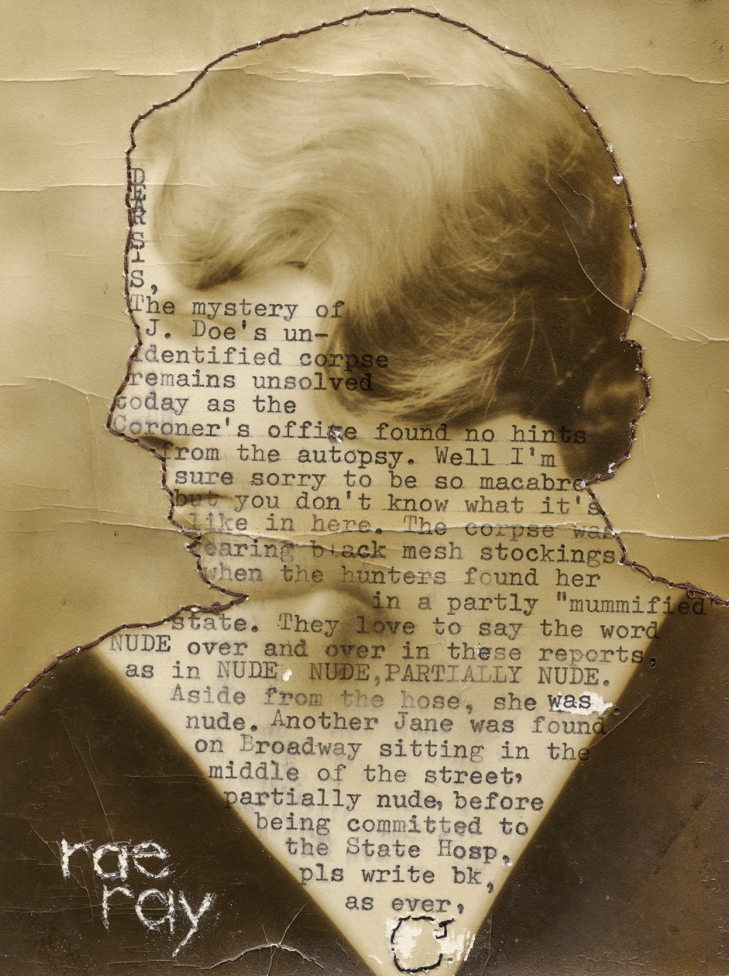 DEAR
SIS,
The mystery of
J. Doe's un-
identified corpse
remains unsolved
today as the
Coroner's office found no hints
from the autopsy. Well I'm
sure sorry to be so macabre
but you don't know what it's
like in here. The corpse was
wearing black mesh stockings
when the hunters found her
in a partly "mummified"
state. They love to say the word
NUDE over and over in these reports,
as in NUDE, NUDE,PARTIALLY NUDE.
Aside from the hose, she was
nude. Another Jane was found
on Broadway sitting in the
middle of the street,
partially nude, before
being committed to
the State Hosp.
pls write bk,
as ever,
C
rae
ray